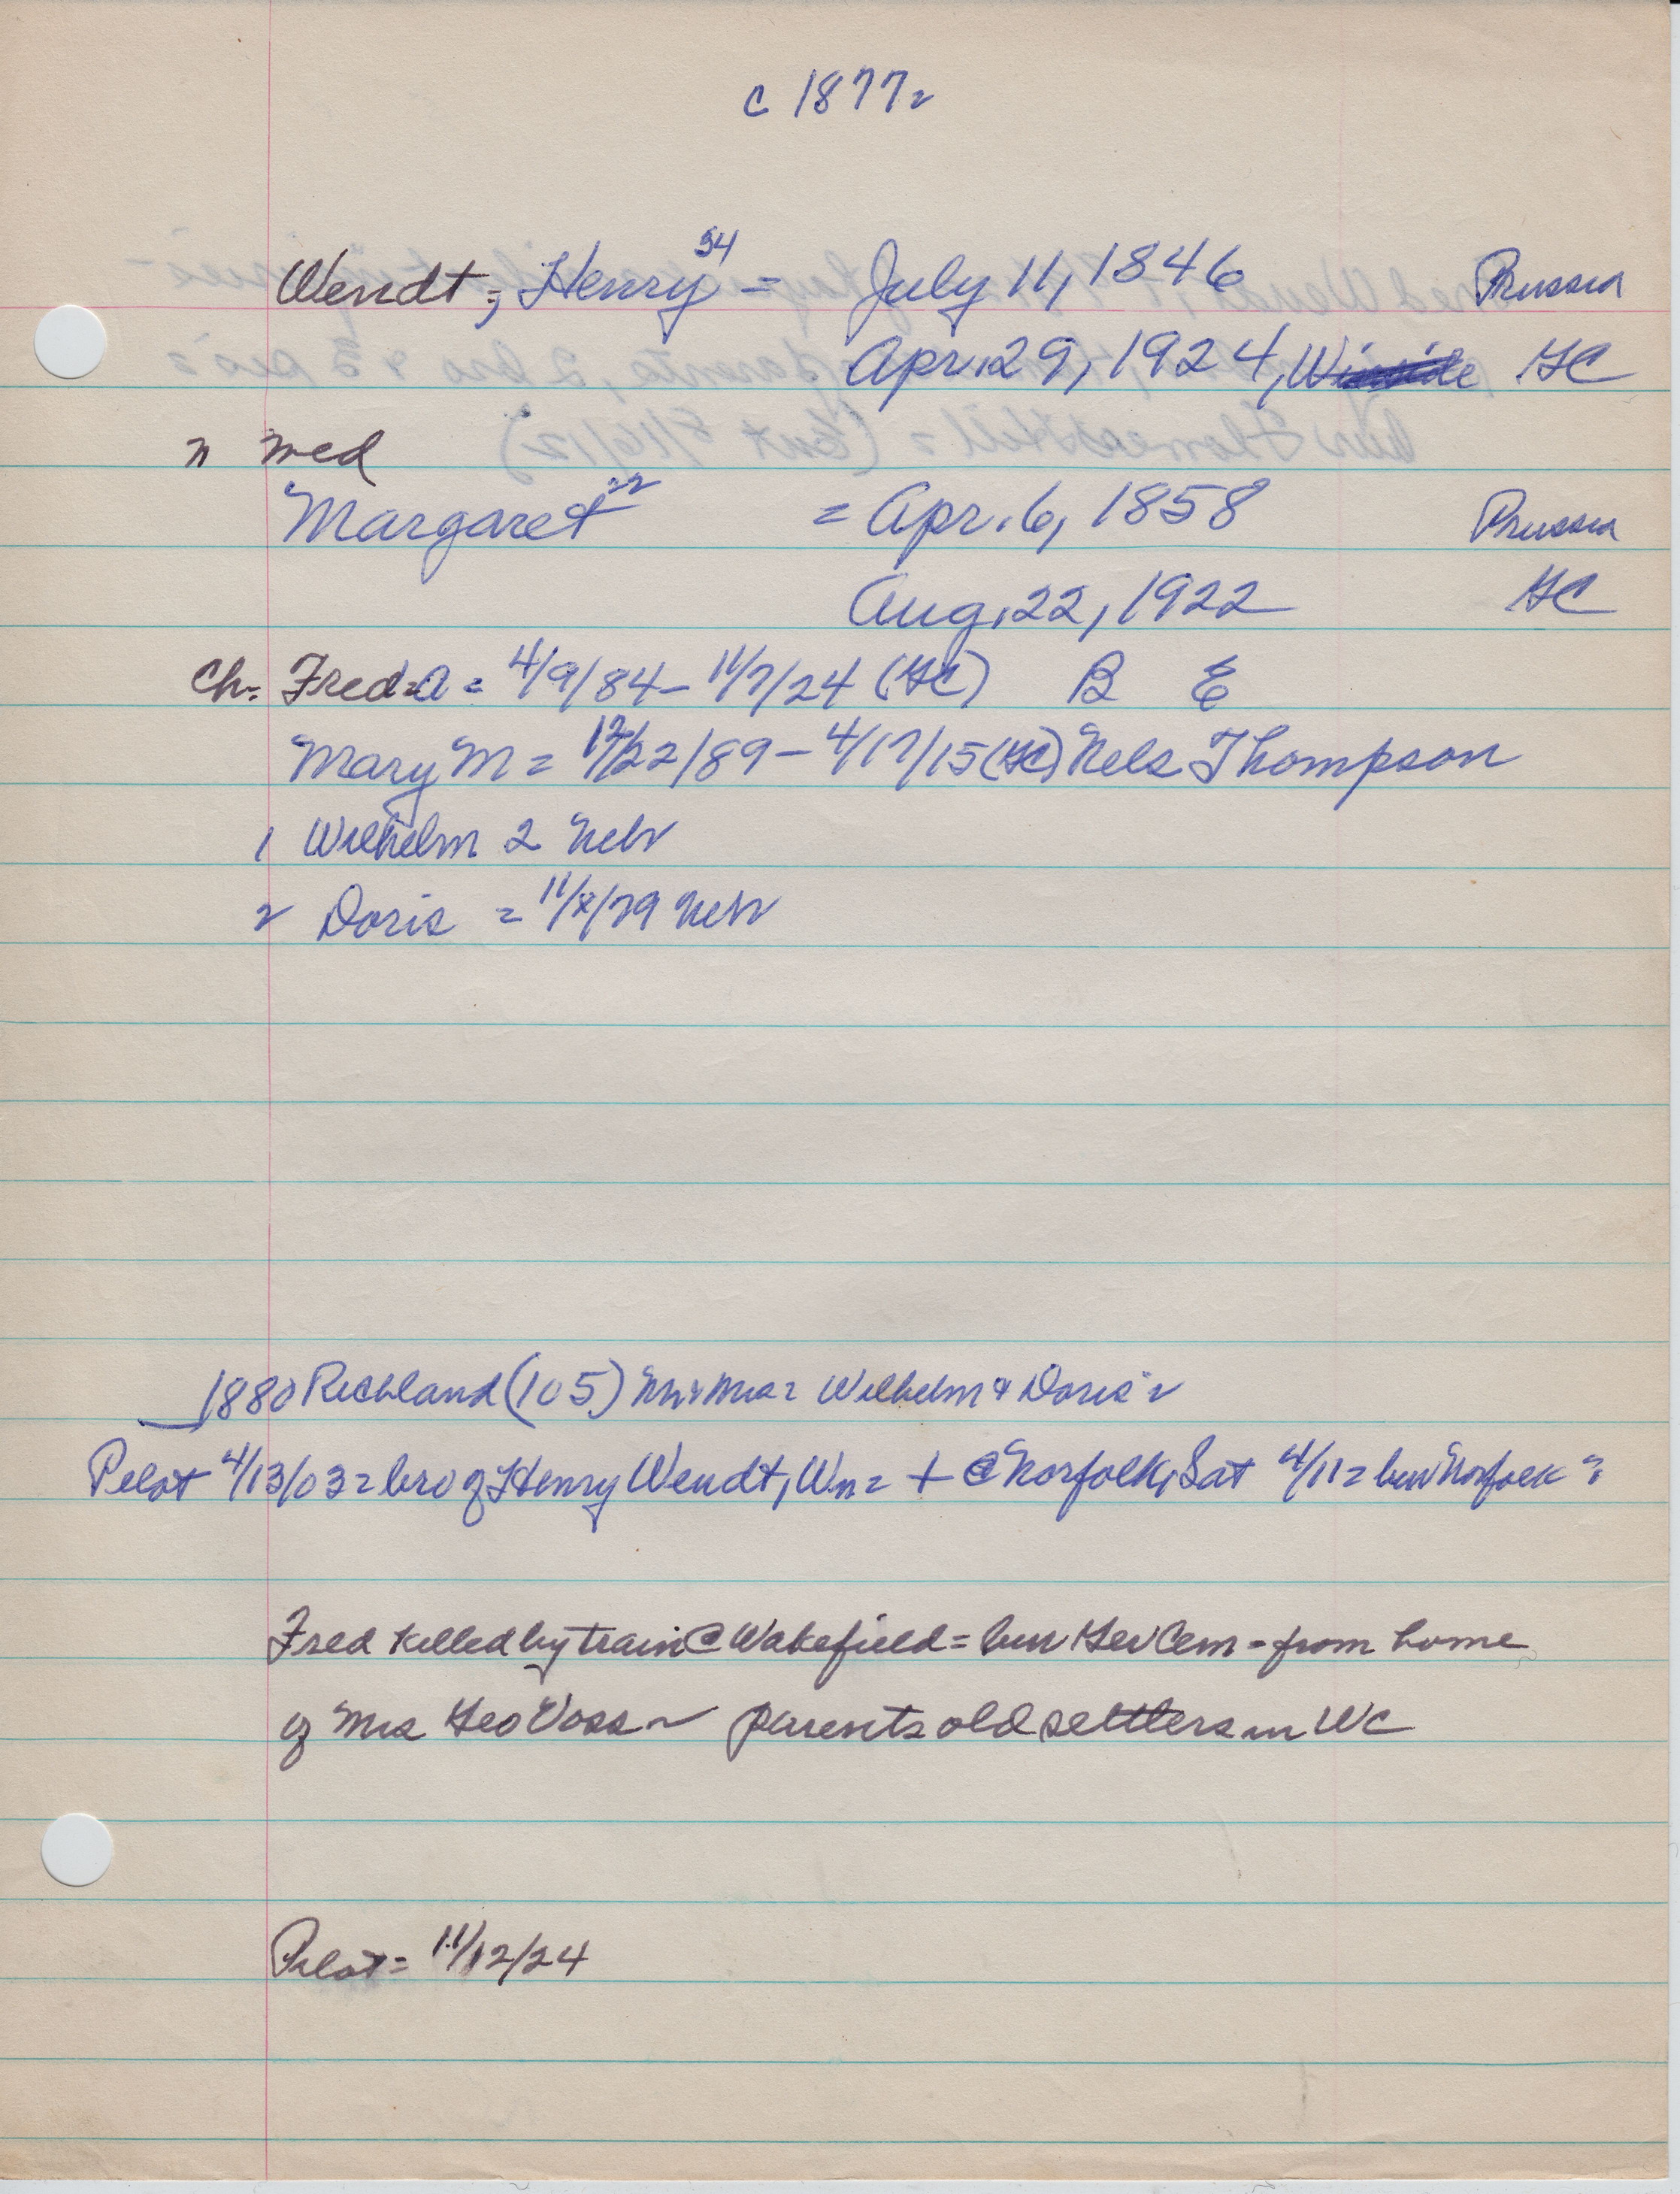 c 1877
Wendt, Henry 34 = July 11, 1846 Prussia
Apr. 29, 1924, Winside GC
med
Margaret 22 = Apr. 6, 1858 Prussia
Aug. 22, 1922 GC
Ch= Fred A = 4/9/84 - 11/7/24 (GC) B E
Mary M = 12/22/89 - 4/17/15 (GC) Nels Thompson
1 Wilhelm 2 Nebr
2 Doris = 11/ /79 Nebr
1880 Richland (105) Mr & Mrs = Wilhelm & Doris
Pilot 4/13/03 = bro of Henry Wendt, Wn = + @ Norfolk, Sat 4/11 = bur Norfolk
Fred killed by train @ Wakefield = bur Cem - from home
of Mrs Geo Voss ~ parents old settlers in WC
Pilot = 11/12/24